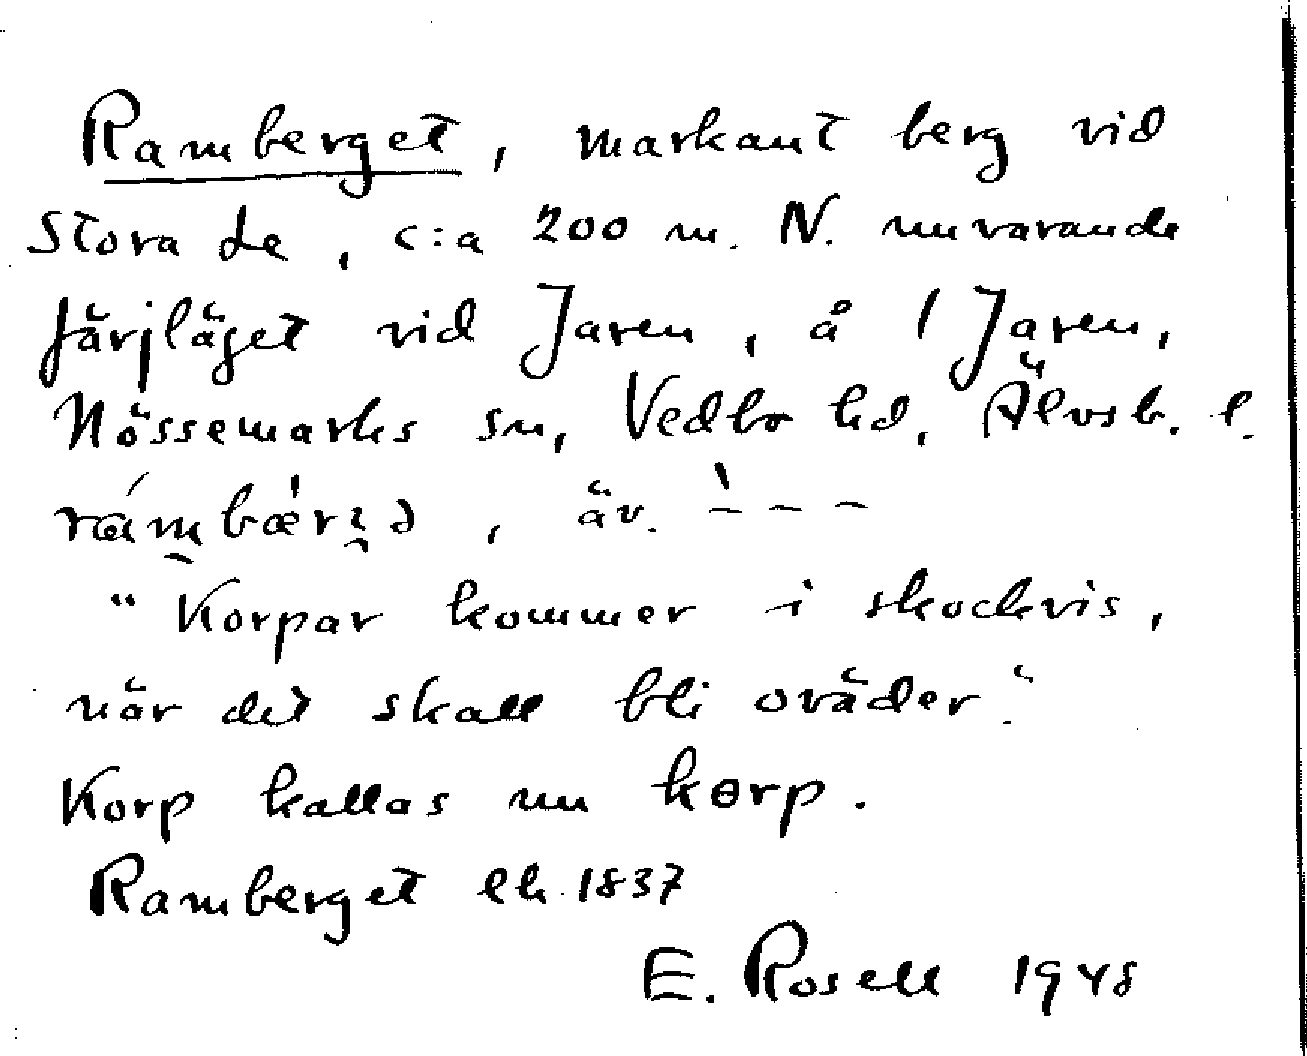 Ramberget, markant berg vid
Stora Le, c:a 200 m. N. nuvarande
färjläget vid Jaren, å 1 Jaren,
Nössemarks sn, Vedbo hd, Älvsb. l.
äv. \ - - -
"Korpar kommer i skockvis,
när det skall bli oväder."
Korp kallas nu kɵrp.
Ramberget ek. 1837
E. Rosell 1948